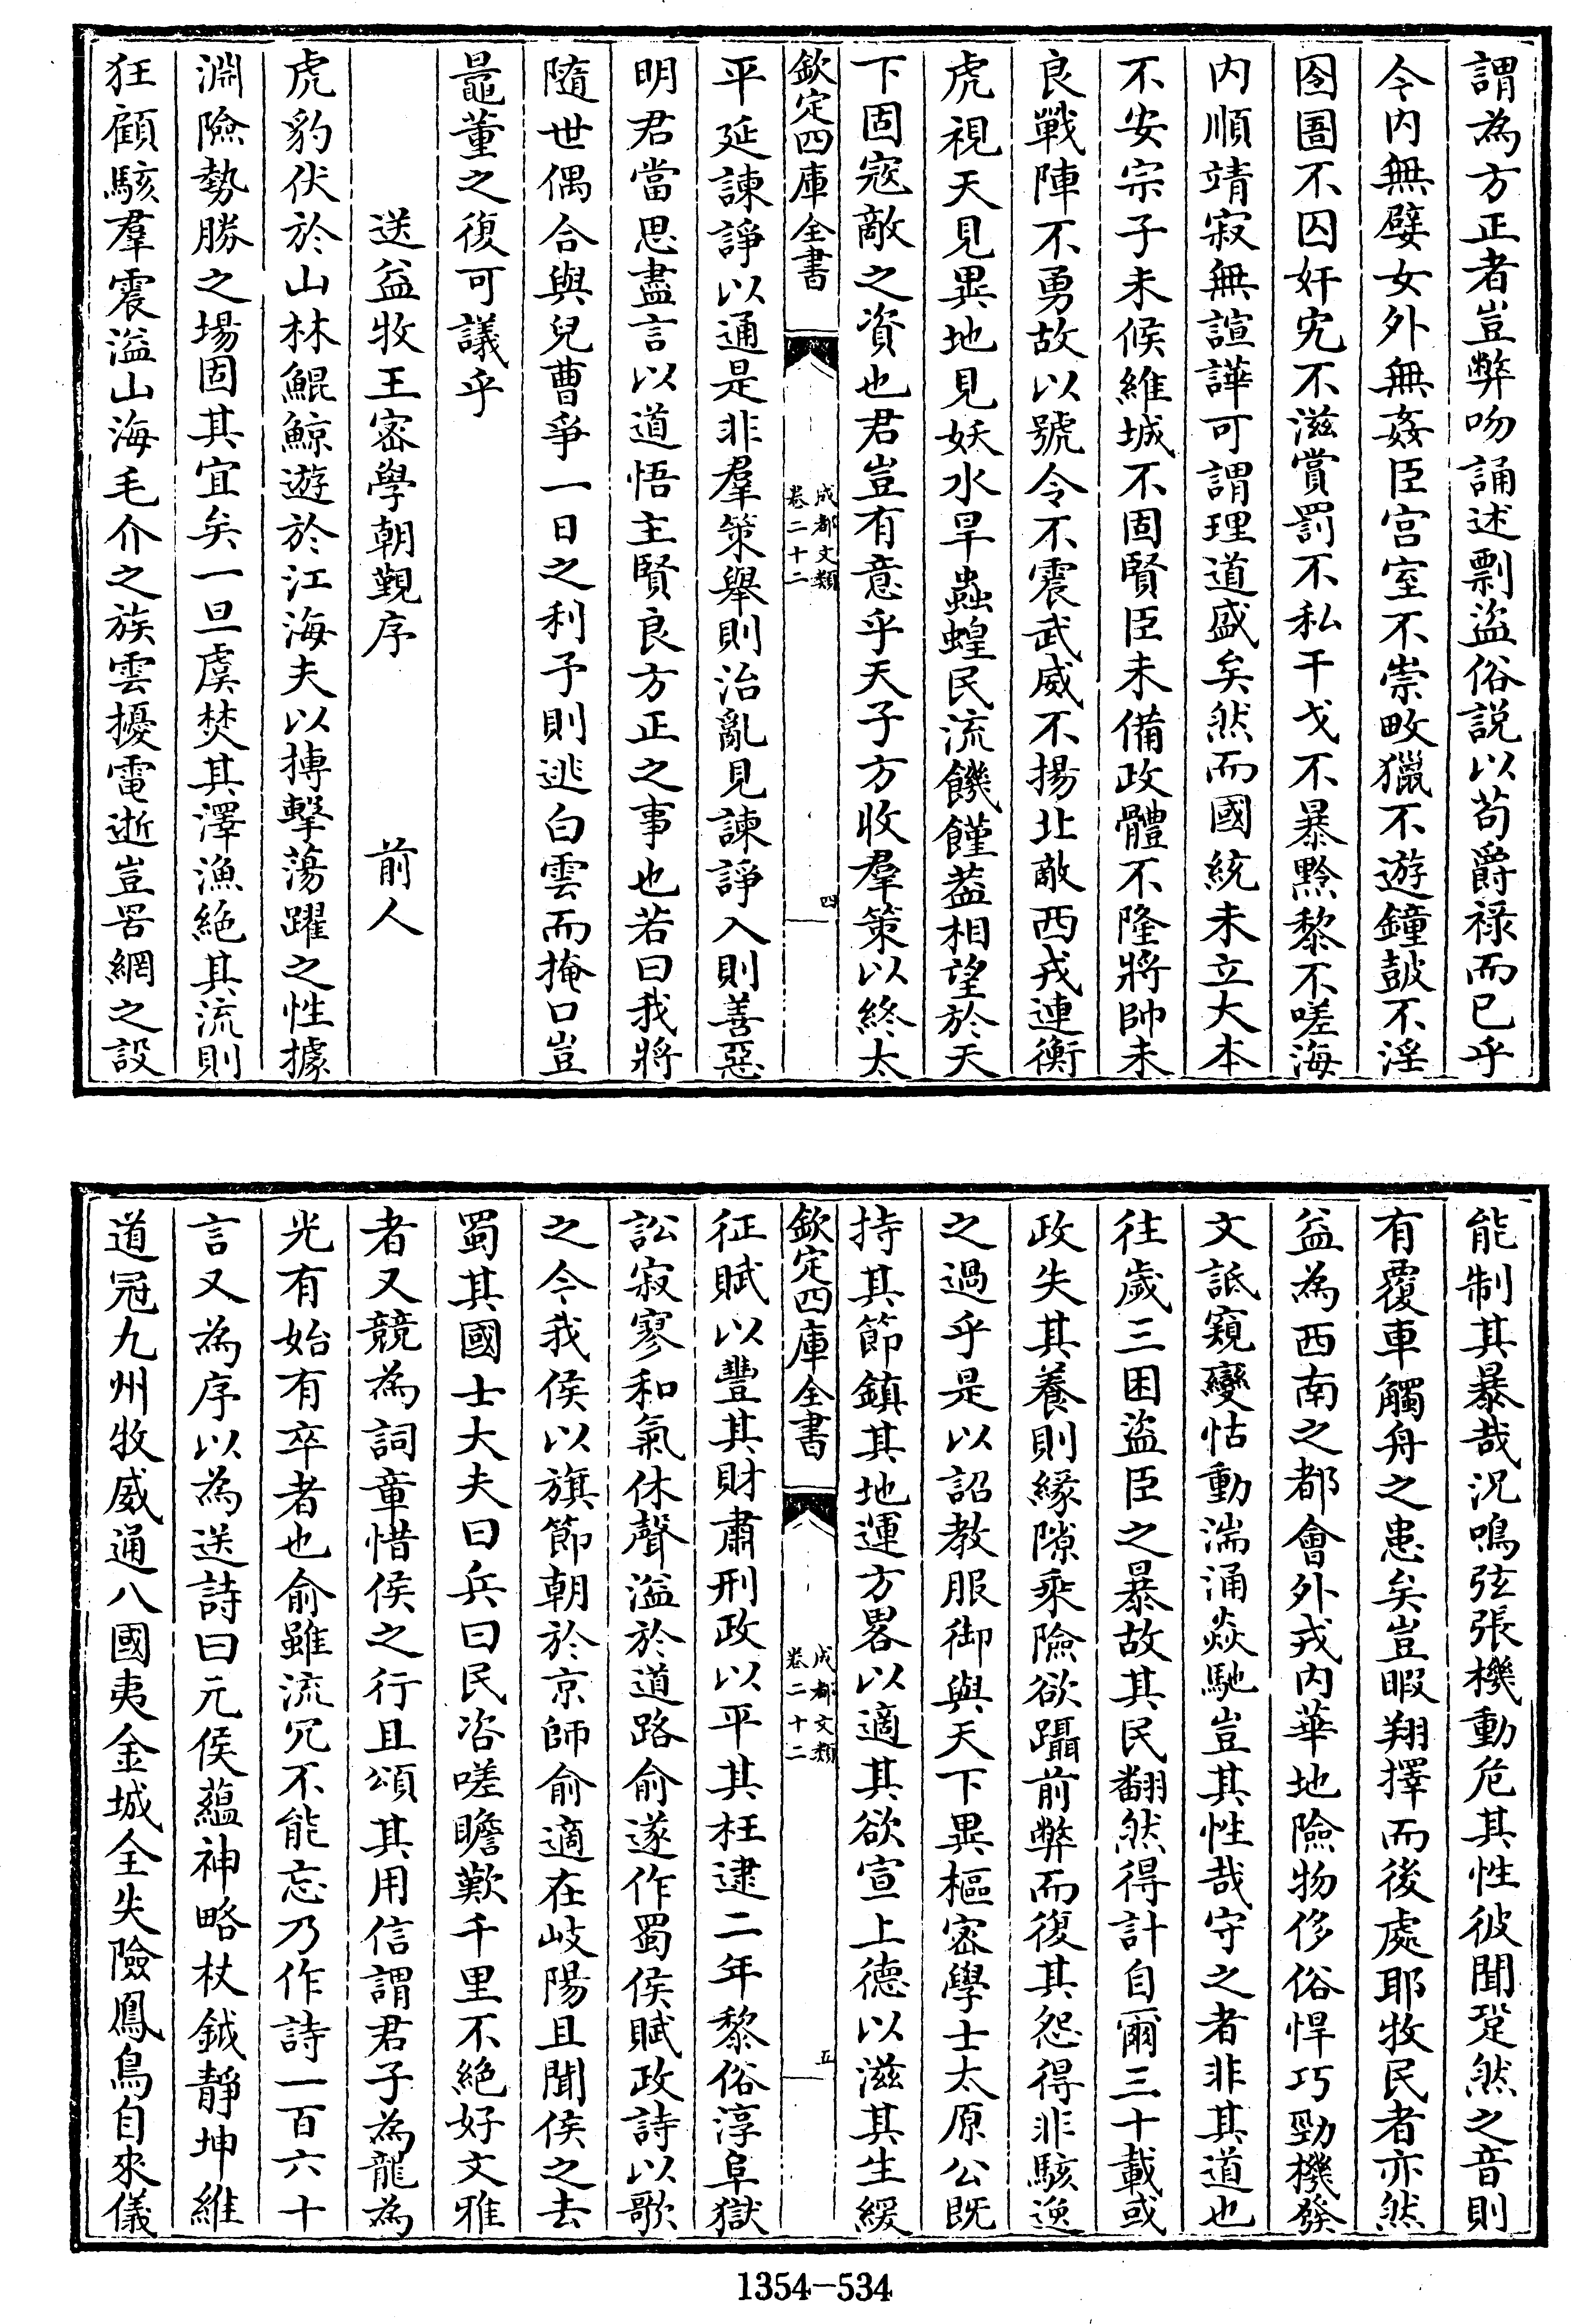 謂為方正者豈弊吻誦述剽盜俗説以苟爵禄而已乎
今内無嬖女外無姦臣宫室不崇畋獵不遊鐘鼓不淫
囹圄不囚奸宄不滋賞罰不私干戈不暴黔黎不嗟海
内順靖寂無諠譁可謂理道盛矣然而國統未立大本
不安宗子未候維城不固賢臣未備政體不隆將帥未
良戰陣不勇故以號令不震武威不揚北敵西戎連衡
虎視天見異地見妖水旱蟲蝗民流饑饉葢相望於天
下固寇敵之資也君豈有意乎天子方收羣策以終太
欽定四庫全書
成都文類
卷二十二
四
平延諫諍以通是非羣策舉則治亂見諫諍入則善惡
明君當思盡言以道悟主賢良方正之事也若曰我將
隨世偶合與兒曹爭一日之利予則逃白雲而掩口豈
鼂董之復可議乎
送益牧王密學朝覲序
前人
虎豹伏於山林鯤鯨遊於江海夫以摶擊蕩躍之性據
淵險勢勝之場固其宜矣一旦虞焚其澤漁絶其流則
狂顧駭羣震溢山海毛介之族雲擾電逝豈罟網之設
能制其暴哉況鳴弦張機動危其性彼聞跫然之音則
有覆車觸舟之患矣豈暇翔擇而後處耶牧民者亦然
益為西南之都會外戎内華地險物侈俗悍巧勁機發
文詆窺變怙動湍涌焱馳豈其性哉守之者非其道也
往歲三困盜臣之暴故其民翻然得計自爾三十載或
政失其養則緣隙乘險欲躡前弊而復其怨得非駭逸
之過乎是以詔教服御與天下異樞密學士太原公既
持其節鎮其地運方畧以適其欲宣上德以滋其生緩
欽定四庫全書
成都文類
卷二十二
五
征賦以豐其財肅刑政以平其枉逮二年黎俗淳阜獄
訟寂寥和氣休聲溢於道路俞遂作蜀侯賦政詩以歌
之今我侯以旗節朝於京師俞適在岐陽且聞侯之去
蜀其國士大夫曰兵曰民咨嗟瞻歎千里不絶好文雅
者又競為詞章惜侯之行且頌其用信謂君子為龍為
光有始有卒者也俞雖流冗不能忘乃作詩一百六十
言又為序以為送詩曰元侯藴神略杖鉞靜坤維
道冠九州牧威通八國夷金城全失險鳳鳥自來儀
1354-534